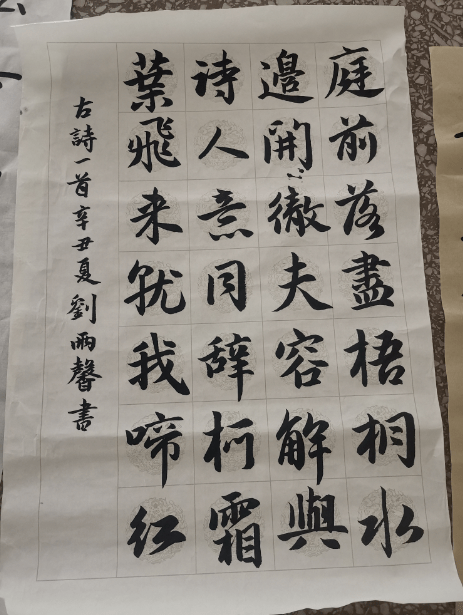 庭前落盡梧桐水
邊開徹夫容解與
诗人意同辞柯霜
葉飛来就我啼红
古詩一首辛丑夏劉雨馨書